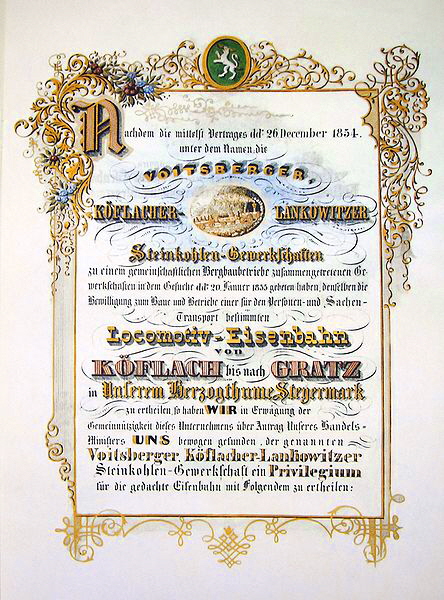 Nachdem die mittelst Vertrages ddt° 26 December 1854.
unter dem Namen, die
VOITSBERGER,
KÖFLACHER- LANKOWITZER
Steinkohlen-Gewerkschaften
zu einem gemeinschaftlichen Bergbaubetriebe zusammengetretenen Ge-
werkschaften in dem Gesuche ddt° 20. Jänner 1855 gebeten haben, denselben die
Bewilligung zum Baue und Betriebe einer für den Personen- und Sachen-
Transport bestimmten
Locomotiv-Eisenbahn
von
KÖFLACH bis nach GRATZ
in Unserem Herzogthume Steyermark
zu ertheilen, so haben WIR in Erwägung der
Gemeinnützigkeit dieses Unternehmens über Antrag Unseres Handels-
Ministers UNS bewogen gefunden, der genannten
Voitsberger, Köflacher-Lankowitzer
Steinkohlen-Gewerkschaft ein Privilegium
für die gedachte Eisenbahn mit Folgendem zu ertheilen: